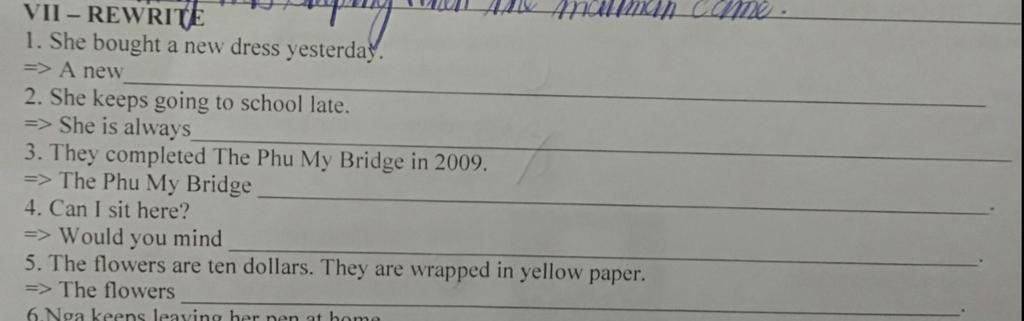 when the mailman came.
VII – REWRITE
1. She bought a new dress yesterday.
=> A new
2. She keeps going to school late.
=> She is always
3. They completed The Phu My Bridge in 2009.
=> The Phu My Bridge .
4. Can I sit here?
=> Would you mind .
5. The flowers are ten dollars. They are wrapped in yellow paper.
=> The flowers .
6.Nga keeps leaving her pen at home